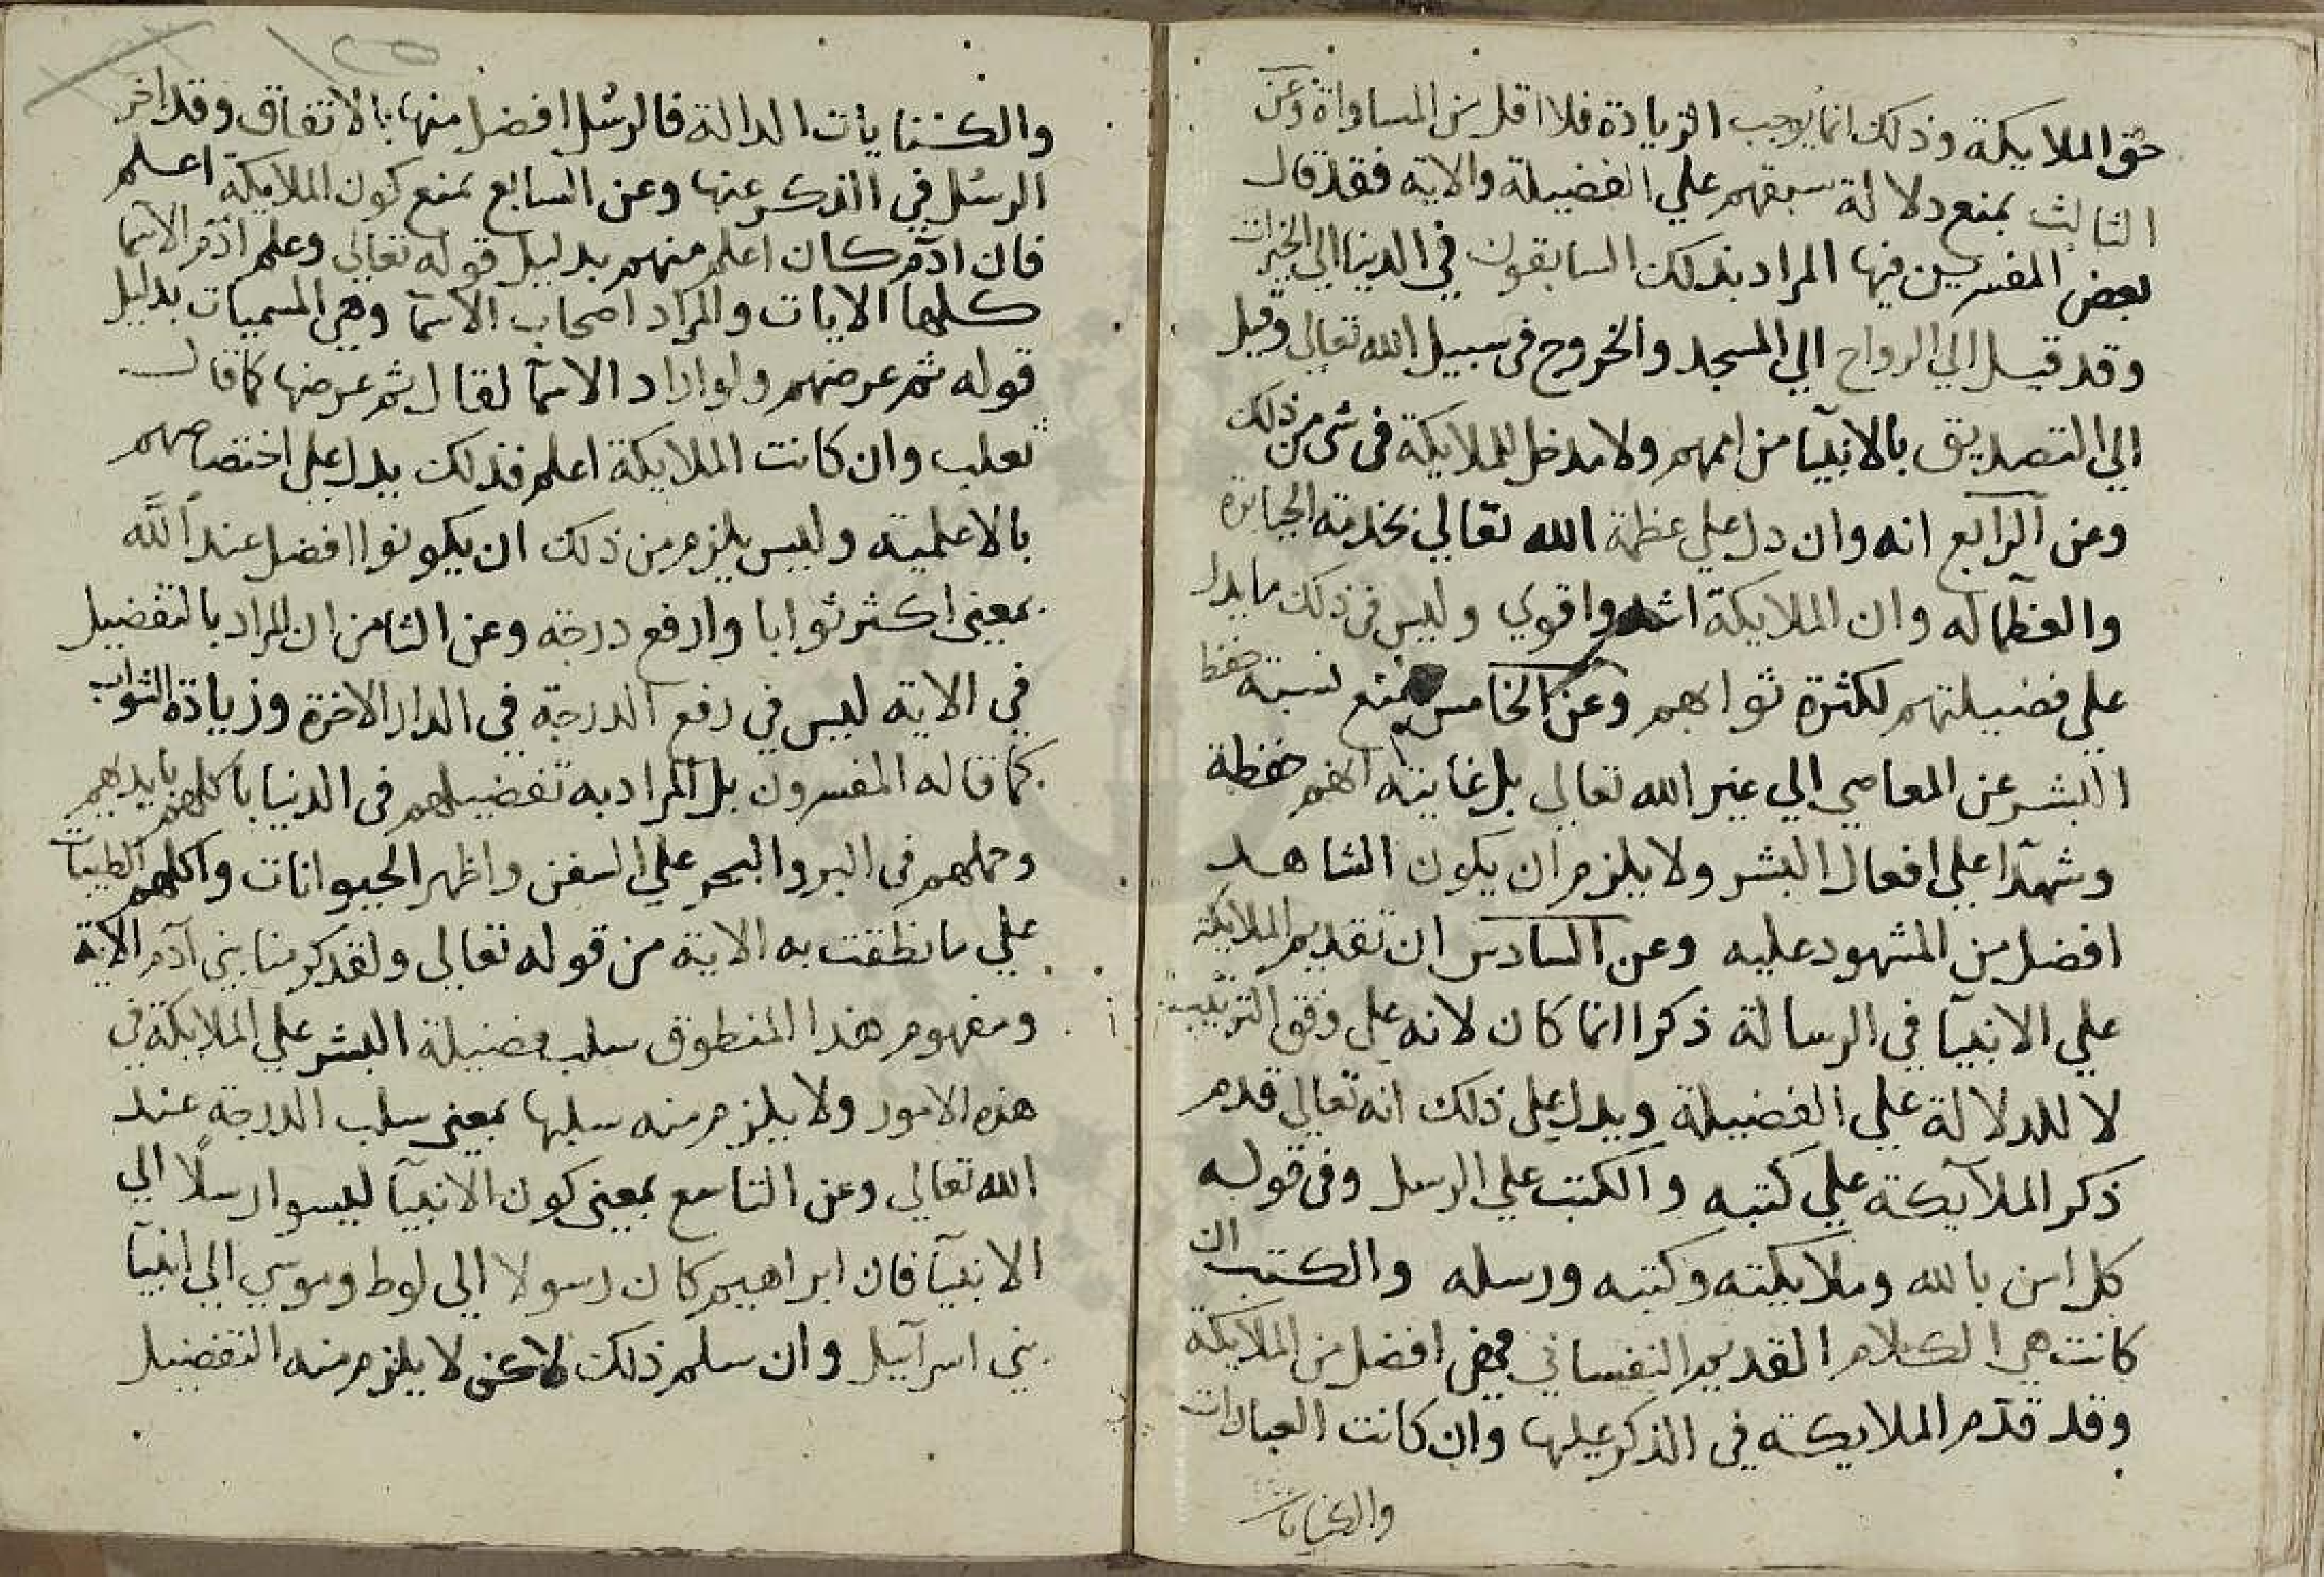 حق الملايكة وذلك انما يوجب الزيادة فلا اقل من المساواة وعن
الثالث بمنع دلالة سبقهم علي الفضيلة والاية فقد قال
بعض المفسرين فيها المراد بذلك السابقون في الدنيا الي الخيرات
وقد قيل الي الرواح الي المسجد والخروج في سبيل الله تعالي وقيل
الي التصديق بالانبيآ من اممهم ولا مدخل للملايكة في شي من ذلك
وعن الرابع انه وان دل علي عظمة الله تعالي بخدمة الجبابرة
والعظمآ له وان الملايكة اشد واقوي وليس في ذلك ما يدل
علي فضيلتهم لكثرة ثوابهم وعن الخامس بمنع نسبة حفظ
البشر عن المعاصي الي غير الله تعالي بل غايته انهم حفظة
وشهدا علي افعال البشر ولا يلزم ان يكون الشاهد
افضل من المشهود عليه وعن السادس ان تقديم الملايكة
علي الانبيآ في الرسالة ذكرا انما كان لانه علي وفق الترتيب
لا للدلالة علي الفضيلة ويدل علي ذلك انه تعالي قدم
ذكر الملآيكة علي كتبه والكتب علي الرسل وفي قوله
كل امن بالله وملايكته وكتبه ورسله والكتب ان
كانت هي الكلام القديم النفساني فهي افضل من الملايكة
وقد قدم الملايكة في الذكر عليها وان كانت العبارات
والكنايات
والكنايات الدالة فالرسل افضل منها بالاتفاق وقد اخر
الرسل في الذكر عنها وعن السابع بمنع كون الملايكة اعلم
فان ادم كان اعلم منهم بدليل قوله تعالي وعلم ادم الاسما
كلها الايات والمراد اصحاب الاسمآ وهي المسميات بدليل
قوله ثم عرضهم ولو اراد الاسمآ لقال ثم عرضها كما قال
ثعلب وان كانت الملايكة اعلم فذلك يدل علي اختصاصهم
بالاعلمية وليس يلزم من ذلك ان يكونوا افضل عند الله
بمعني اكثر ثوابا وارفع درجة وعن الثامن ان المراد بالتفضيل
في الاية ليس في رفع الدرجة في الدار الاخرة وزيادة الثواب
كما قاله المفسرون بل المراد به تفضيلهم في الدنيا باكلهم بايديهم
وحملهم في البر والبحر علي السفن واظهر الحيوانات واكلهم الطيبات
علي ما نطقت به الاية من قوله تعالي ولقد كرمنا بني آدم الاية
ومفهوم هذا المنطوق سلب فضيلة البشر علي الملايكة في
هذه الامور ولا يلزم منه سلبها بمعني سلب الدرجة عند
الله تعالي وعن التاسع بمعني كون الانبيآ ليسوا رسلا الي
الانبيآ فان ابراهيم كان رسولا الي لوط وموسي الي انبيآ
بني اسرآيل وان سلم ذلك لاكن لا يلزم منه التفضيل